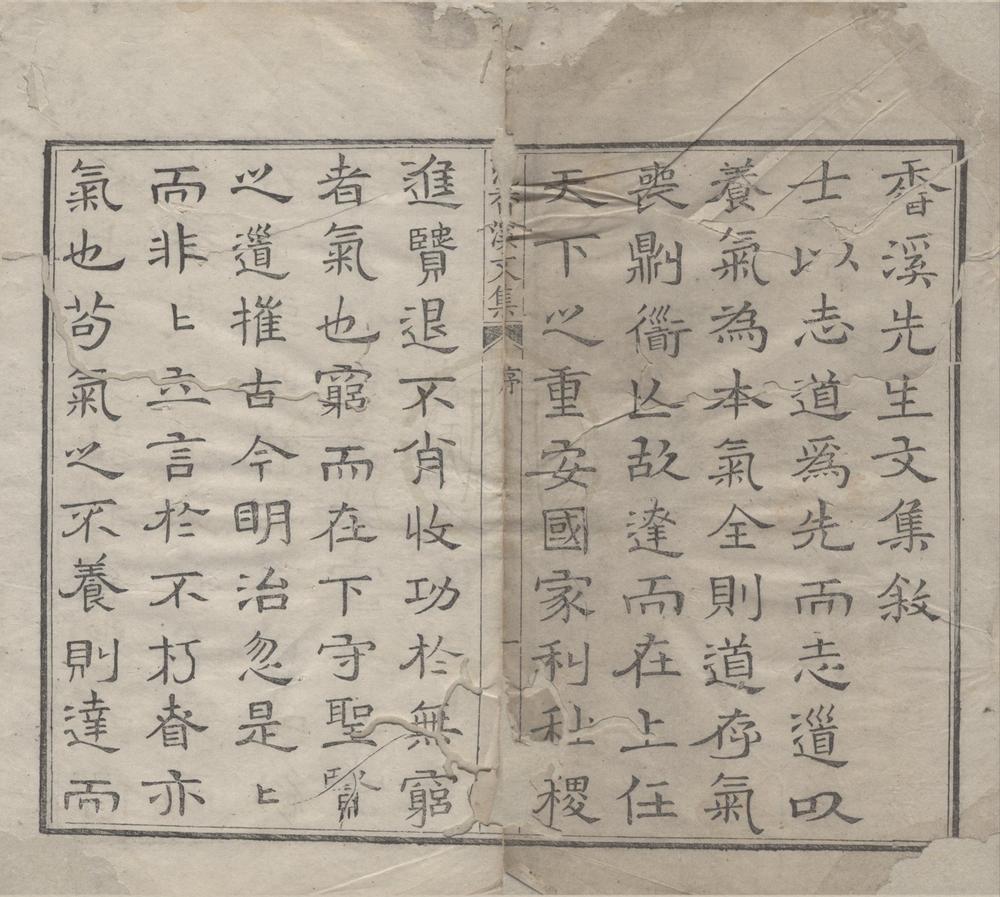 香溪先生文集敘
士以志道爲先而志道㕥
養氣為本氣全則道存氣
喪則衟亾故達而在上任
天下之重安國家利社稷
香溪文集 序 一
進賢退不肖收功於無窮
者氣也窮而在下守聖賢
之道搉古今明治忽是〻
而非〻立言於不朽者亦
氣也苟氣之不養則達而